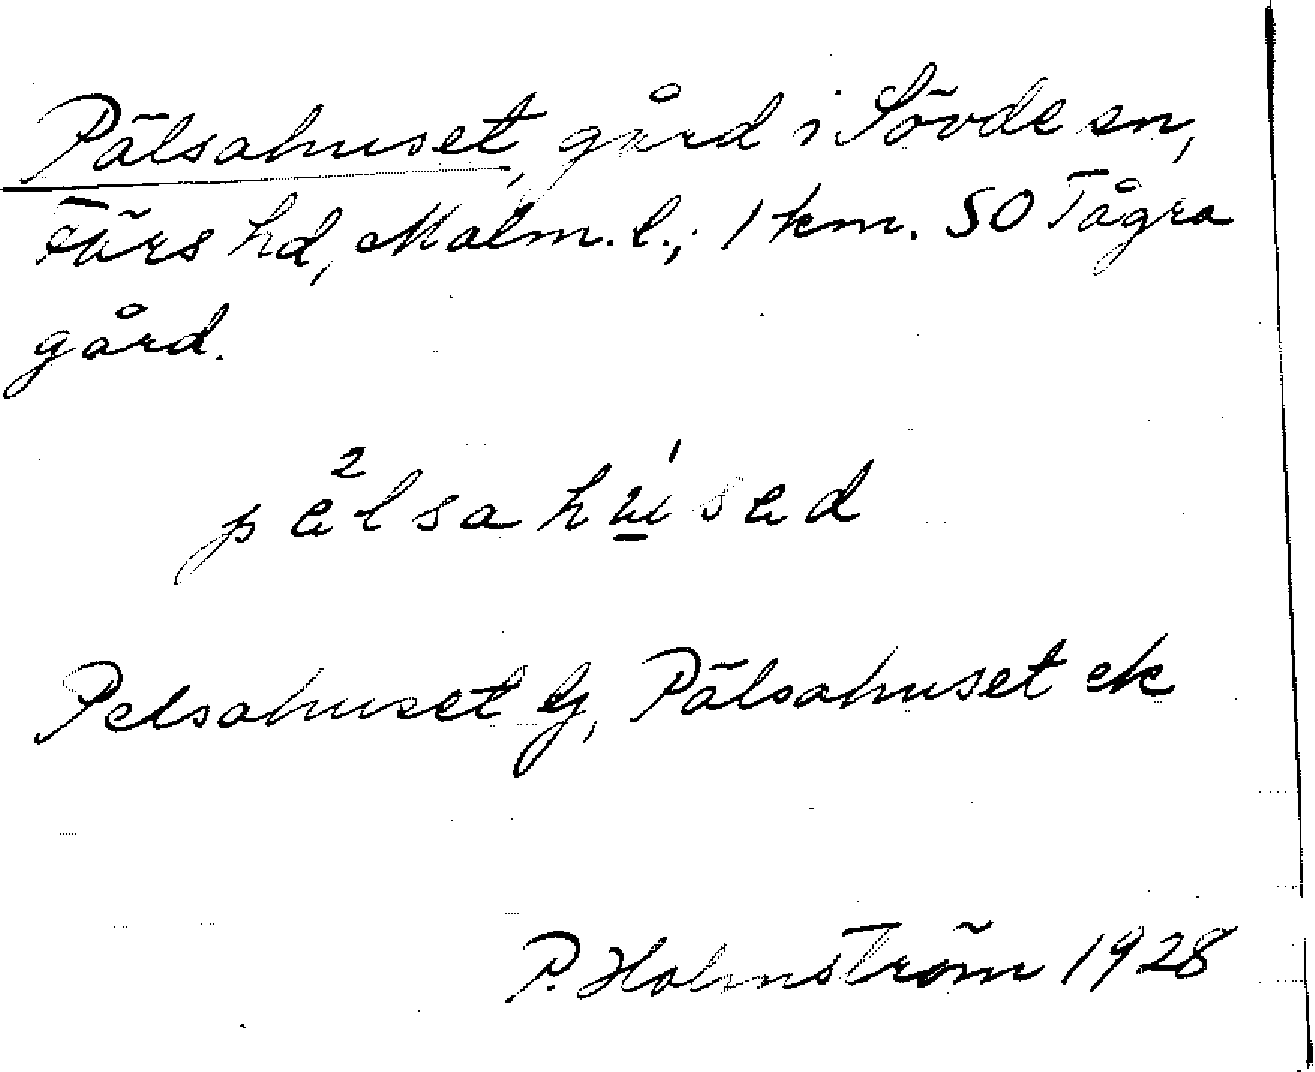 Pälsahuset, gård i Sövde sn,
Färs hd, Malm. l.; 1 km. SO Tågra
gård.
pälsahu̲sad
Pelsahuset Gj, Pälsahuset ek
P. Holmström 1928